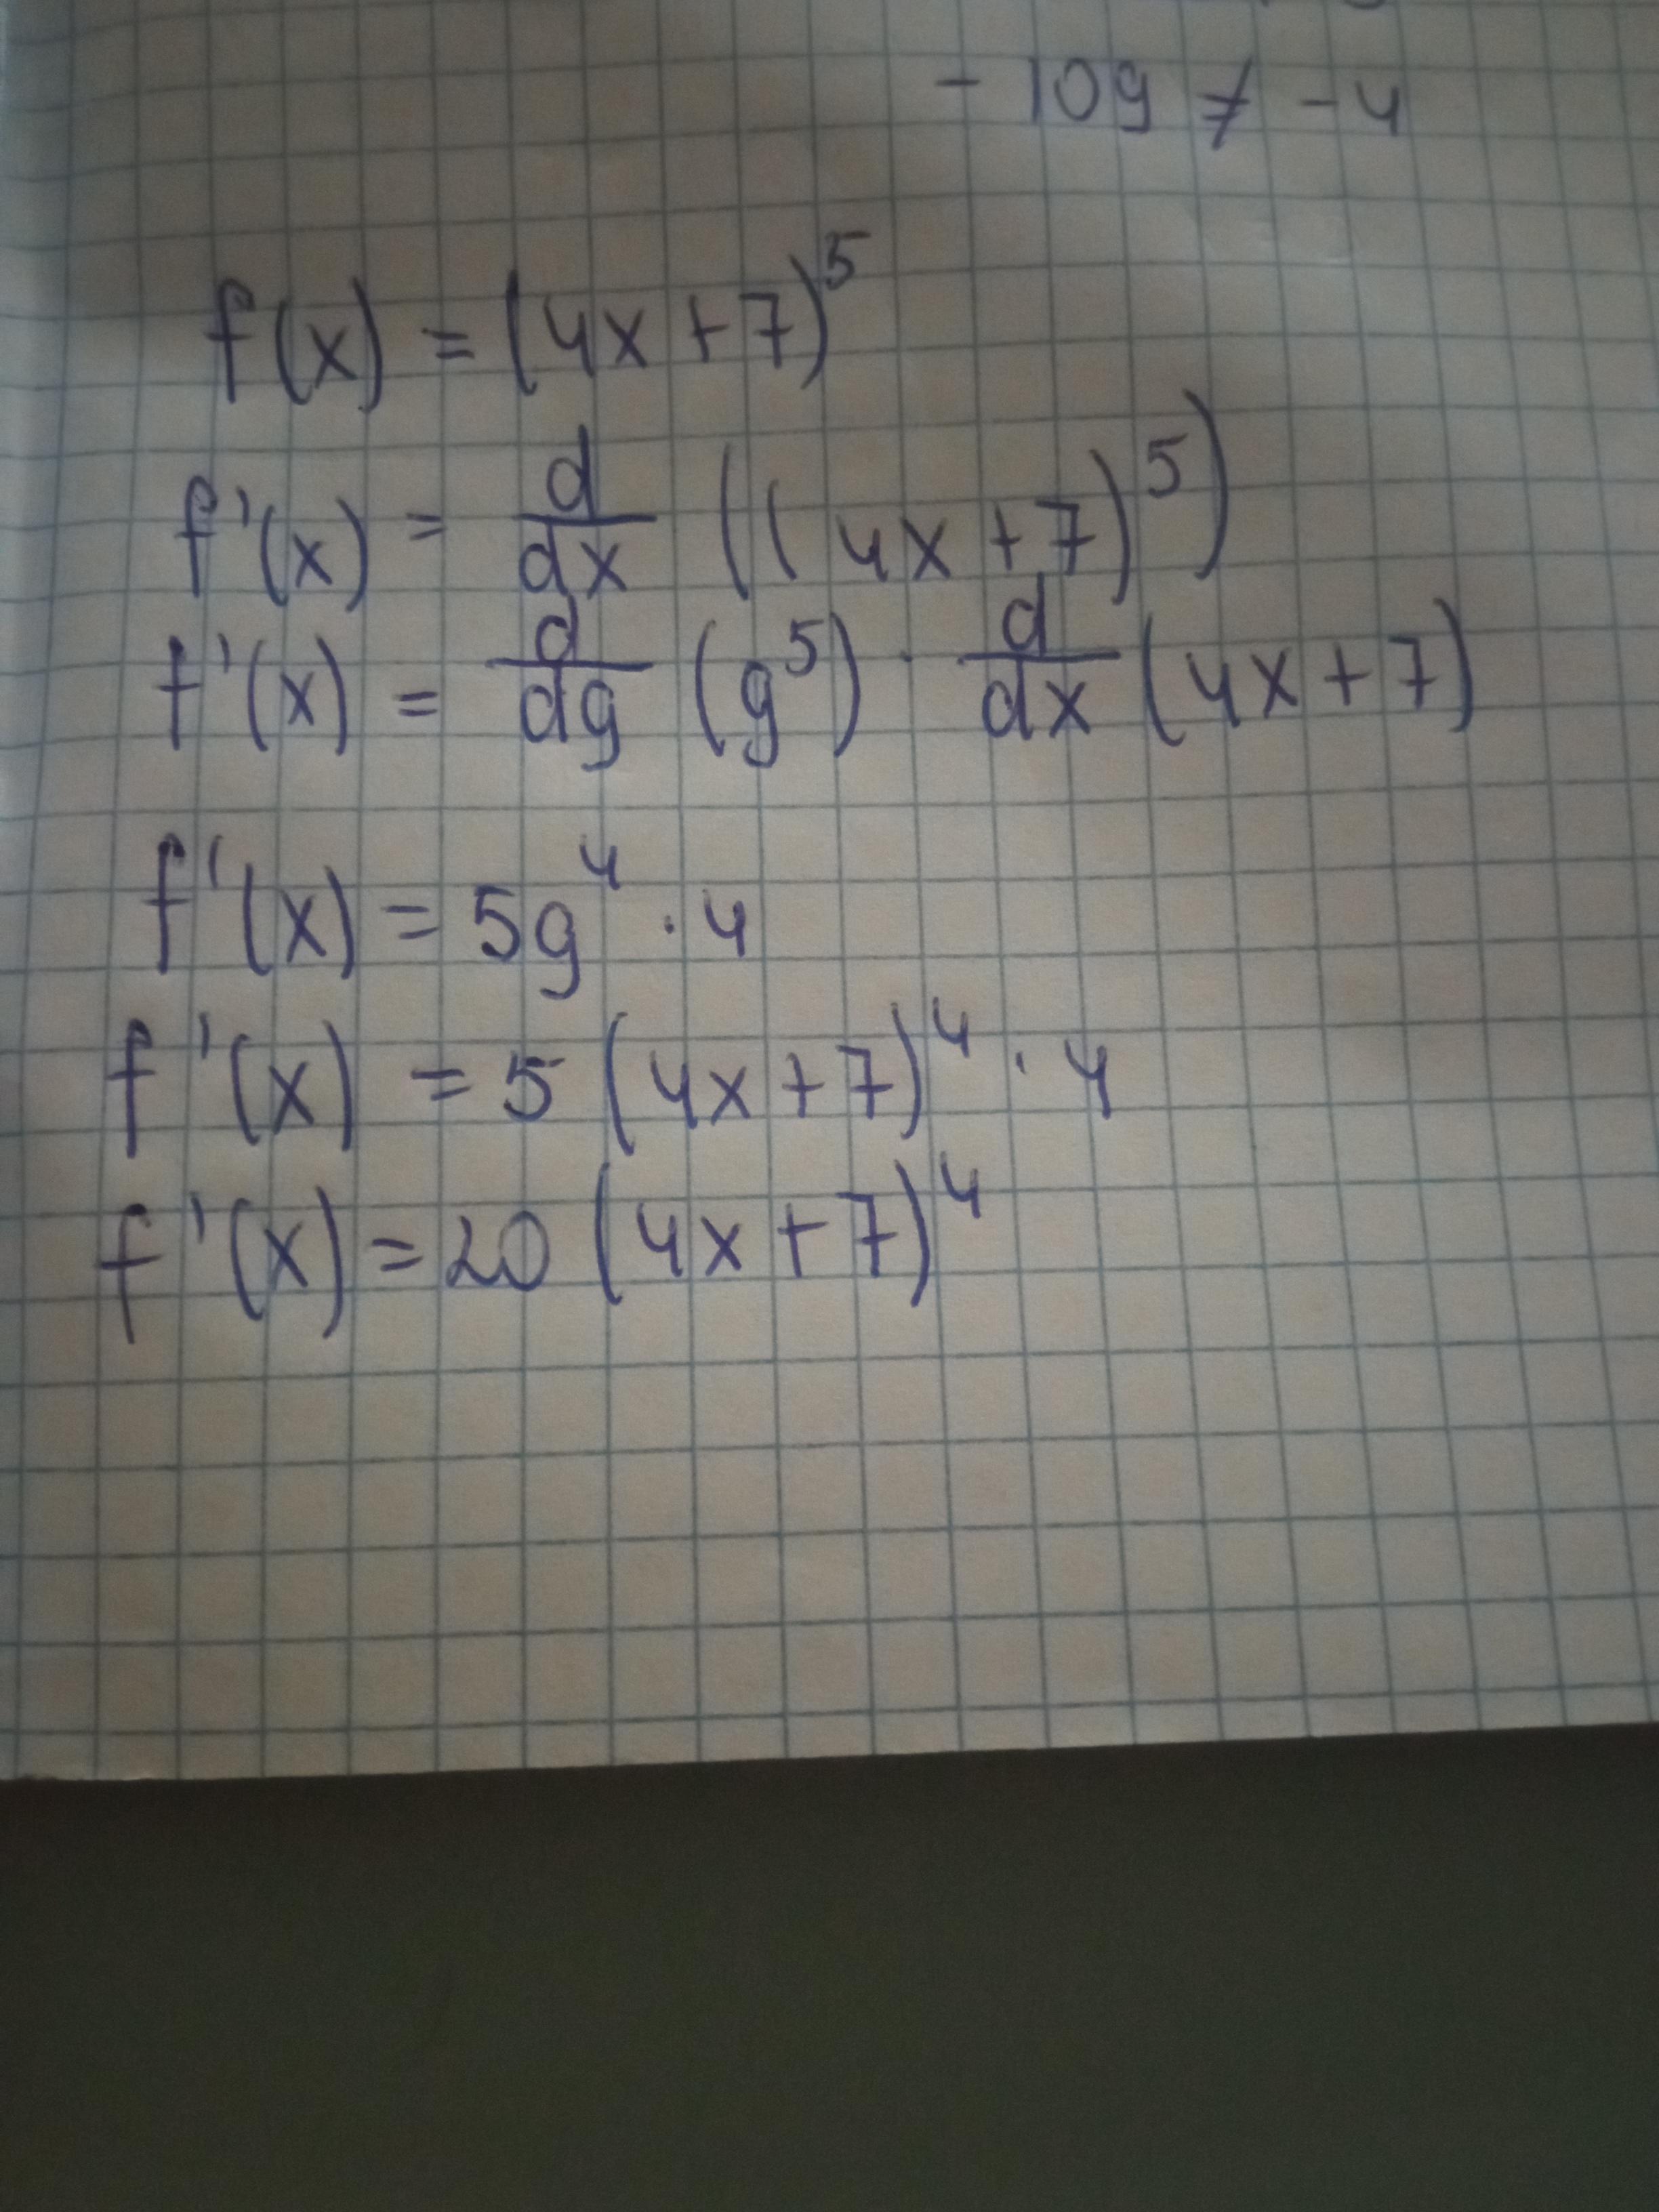 - 109 ≠ - 4
f(x) = (4x + 7)^5
f'(x) = d/dx ((4x + 7)^5)
f'(x) = d/dg (g^5) · d/dx (4x + 7)
f'(x) = 5g^4 · 4
f'(x) = 5 (4x + 7)^4 · 4
f'(x) = 20 (4x + 7)^4